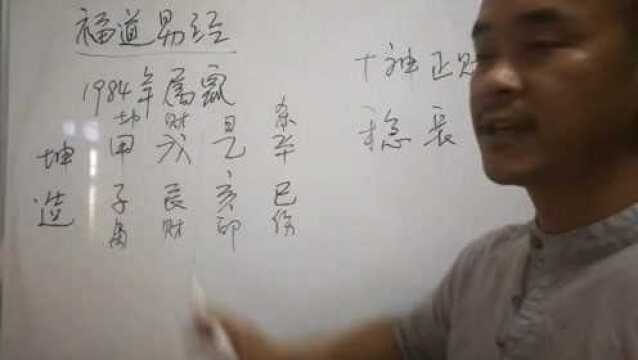 福道易经
1984年属鼠
劫 财 日 杀
坤 甲 戊 乙 辛
造 子 辰 亥 巳
枭 财 印 伤
十神正财
稳